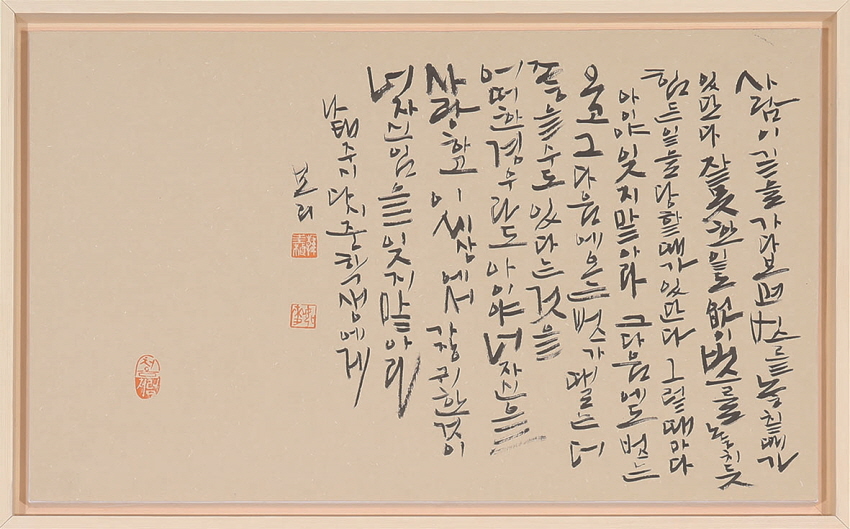 사람이 길을 가다보면 버스를 놓칠때가
있단다 잘못한일도 없이 버스를 놓치듯
힘든일을 당할때가 있단다 그럴때마다
아이야 잊지말아라 그다음에도 버스는
오고 그다음에오는 버스가 때로는 더
좋을수도 있다는것을
어떠한경우라도 아이야 너자신을
사랑하고 이세상에서 가장귀한것이
너자신임을 잊지말아라
나태주시 다시중학생에게
보리